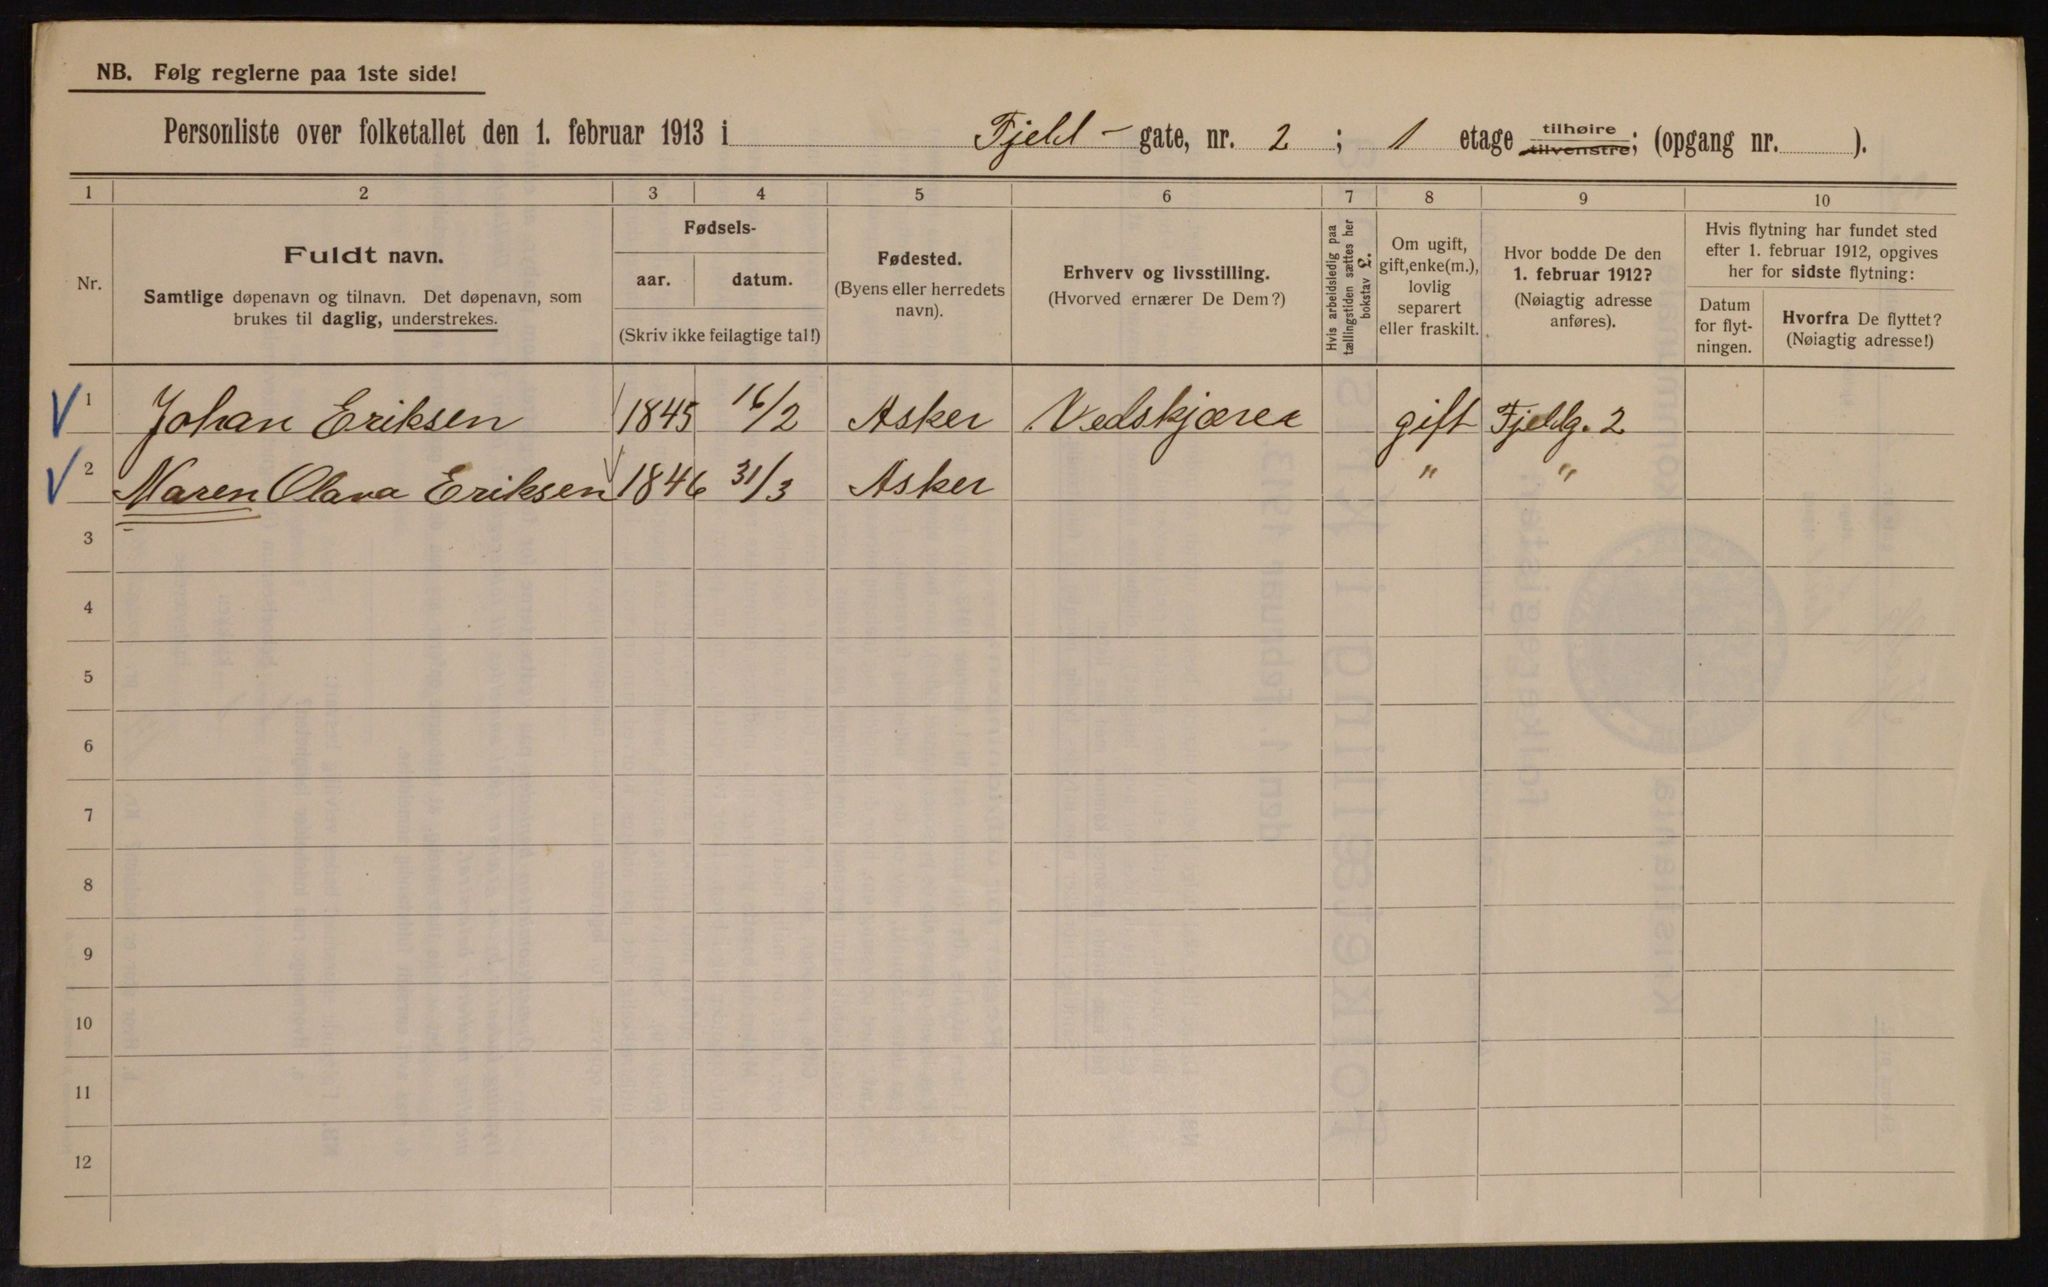 NB. Følg reglerne paa 1ste side!
Personliste over folketallet den 1. februar 1913 i Fjeld - gate, nr. 2 ; 1 etage tilhøire tilvenstre; (opgang nr. ).
1 2 3 4 5 6 7 8 9 10
Nr.
Fuldt navn.
Samtlige døpenavn og tilnavn. Det døpenavn, som
brukes til daglig, understrekes.
Fødsels-
aar. datum.
(Skriv ikke feilagtige tal!)
Fødested.
(Byens eller herredets
navn).
Erhverv og livsstilling.
(Hvorved ernærer De Dem?)
Hvis arbeidsledig paa
tællingstiden sættes her
bokstav L.
Om ugift,
gift, enke(m.),
lovlig
separert
eller fraskilt.
Hvor bodde De den
1. februar 1912?
(Nøiagtig adresse
anføres).
Hvis flytning har fundet sted
efter 1. februar 1912, opgives
her for sidste flytning:
Datum
for flyt-
ningen.
Hvorfra De flyttet?
(Nøiagtig adresse!)
1 Johan Eriksen 1845 16/2 Asker Vedskjærer gift Fjeldg. 2
2 Maren Olava Eriksen 1846 31/3 Asker " "
3
4
5
6
7
8
9
10
11
12